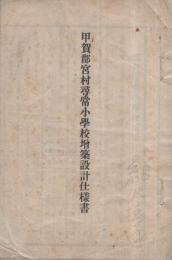 甲賀郡宮村尋常小學校增築設計仕樣書